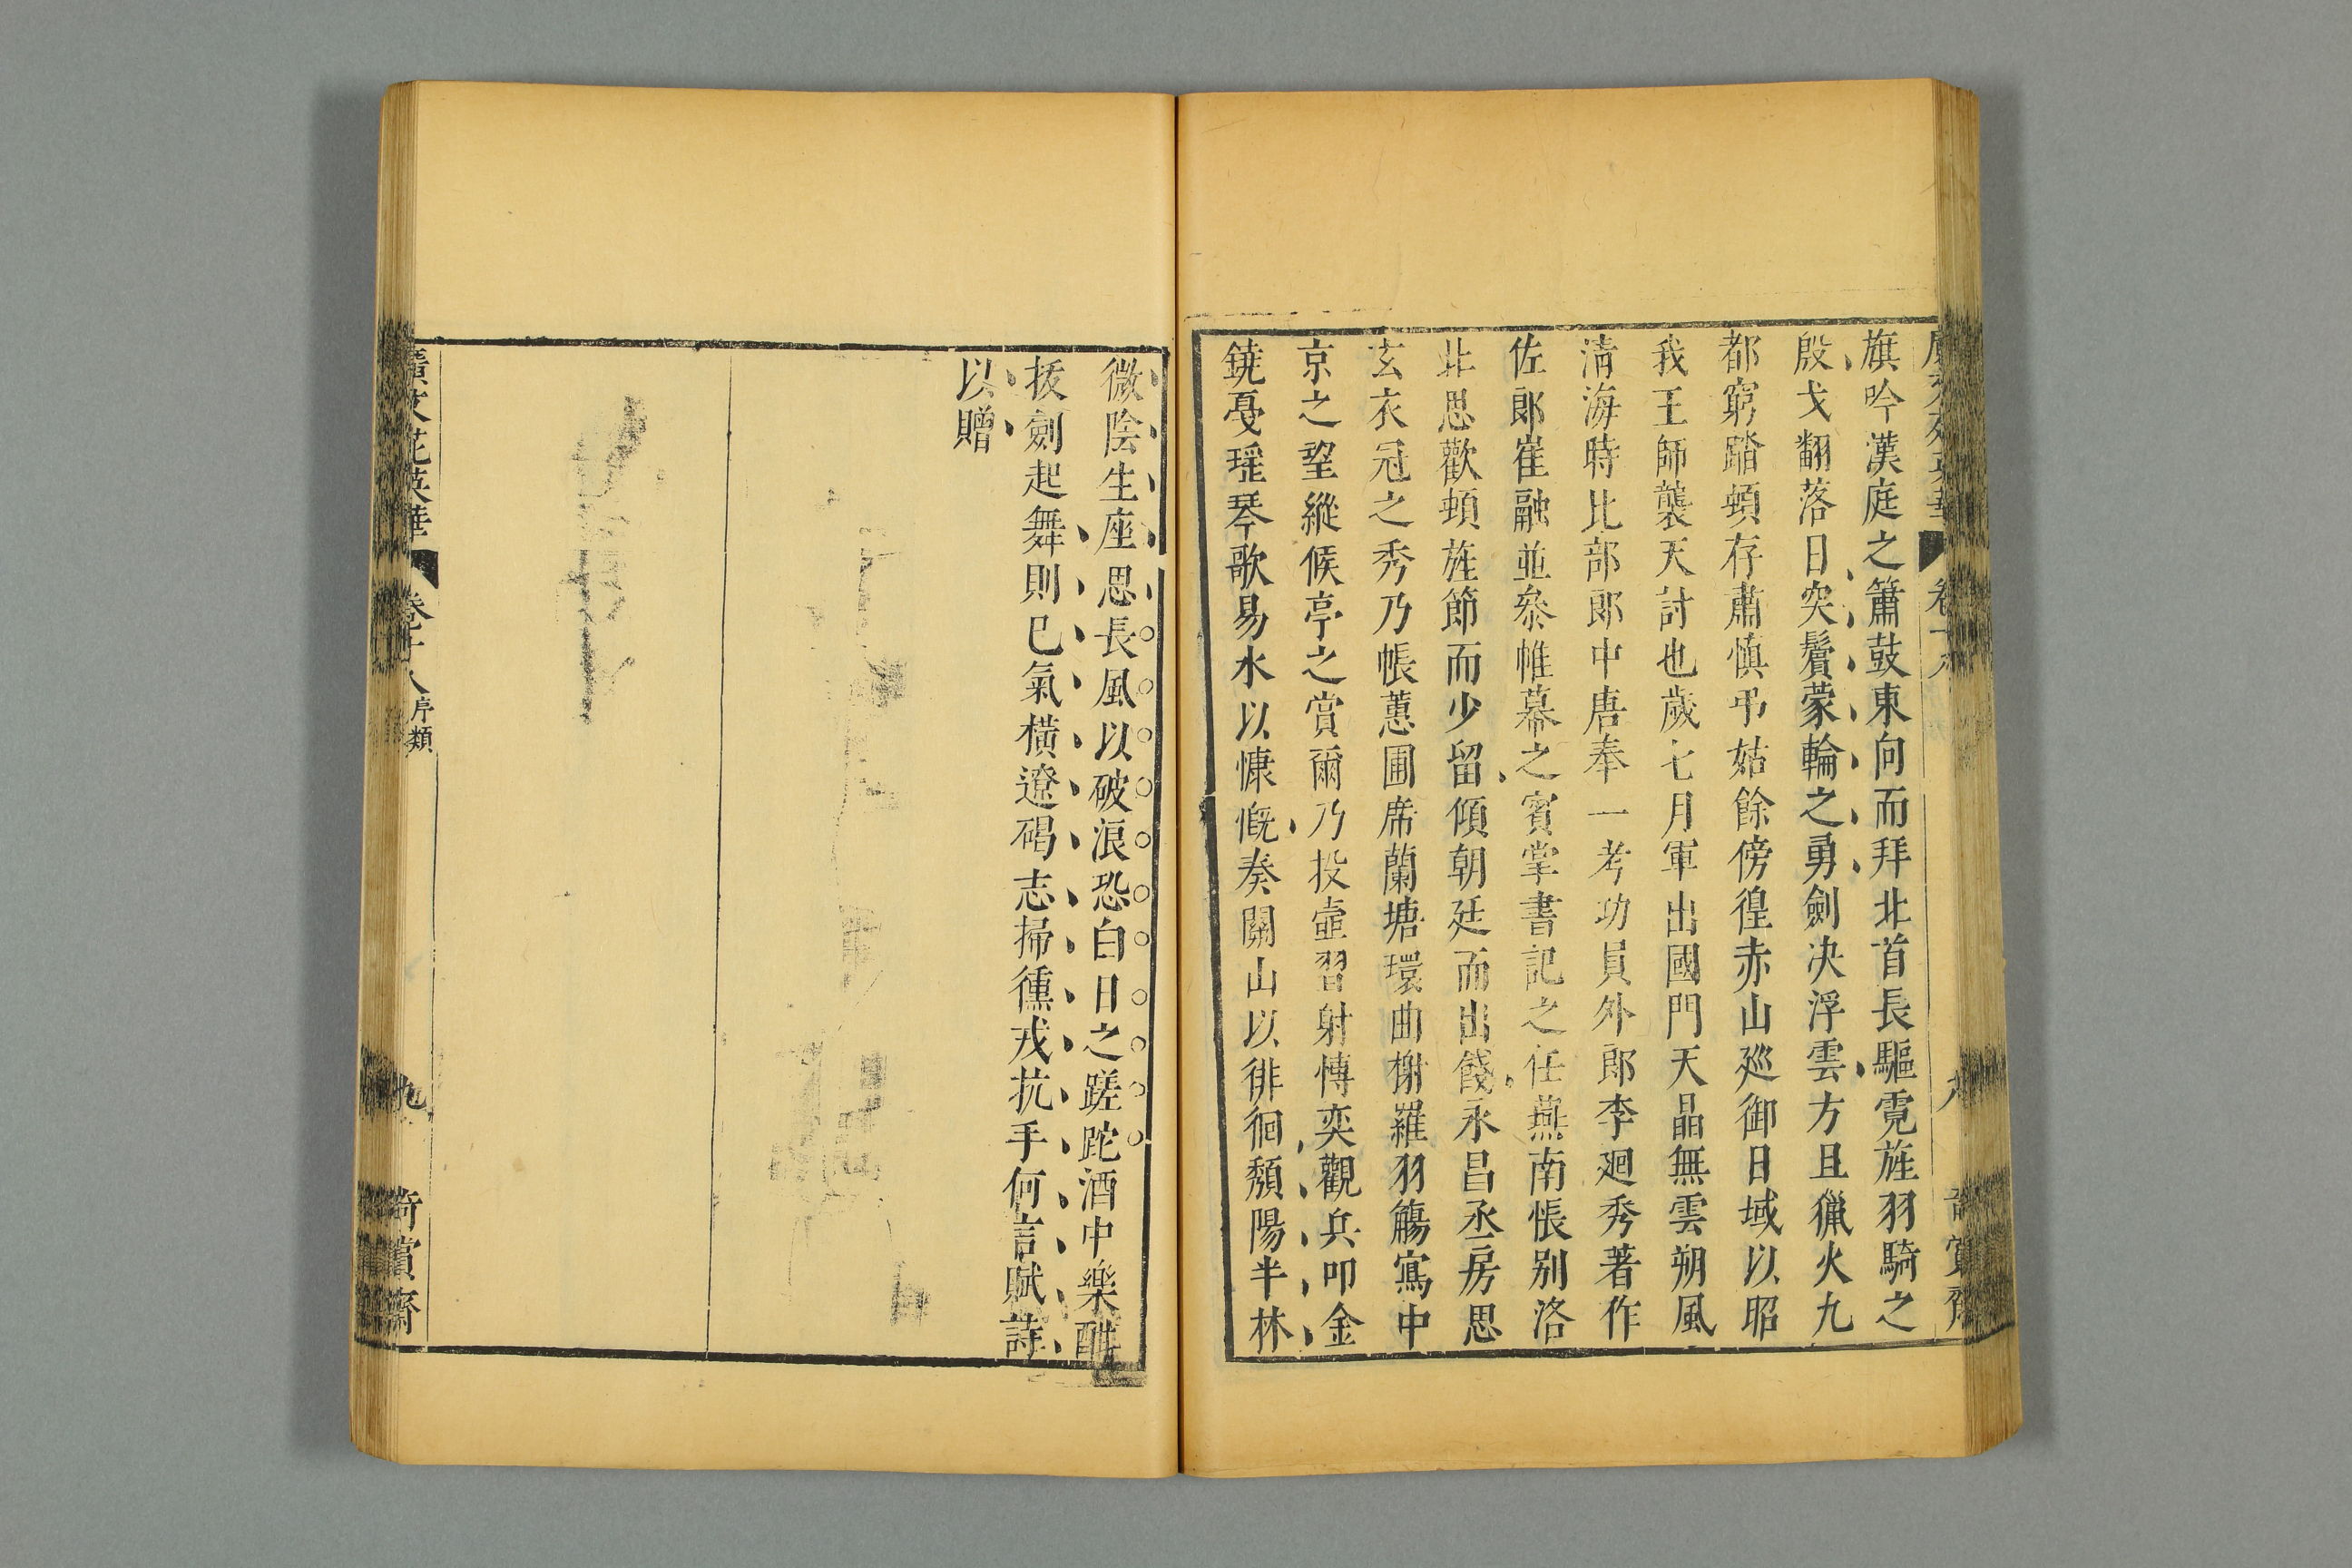 旗吟漢庭之簫鼓東向而拜北首長驅霓旌羽騎之
殷戈翻落日突鬢蒙輪之勇劍決浮雲方且獵火九
都窮踏頓存肅慎弔姑餘傍徨赤山廵御日域以昭
我王師襲天討也歲七月軍出國門天晶無雲朔風
清海時比部郎中唐奉一考功員外郎李廻秀著作
佐郎崔融並叅帷幕之賓掌書記之任燕南悵別洛
北思歡頓旌節而少留傾朝廷而出餞永昌丞房思
玄衣冠之秀乃帳蕙圃席蘭塘環曲榭羅羽觴寫中
京之望縱候亭之賞爾乃投壺習射博奕觀兵叩金
鐃戞瑶琴歌易水以慷慨奏關山以徘徊頽陽半林
微陰生座思長風以破浪恐白日之蹉跎酒中樂酣
拔劍起舞則已氣橫遼碣志掃獯戎抗手何言賦詩
以贈
廣文苑英華
卷十八
序類
九
奇賞齋